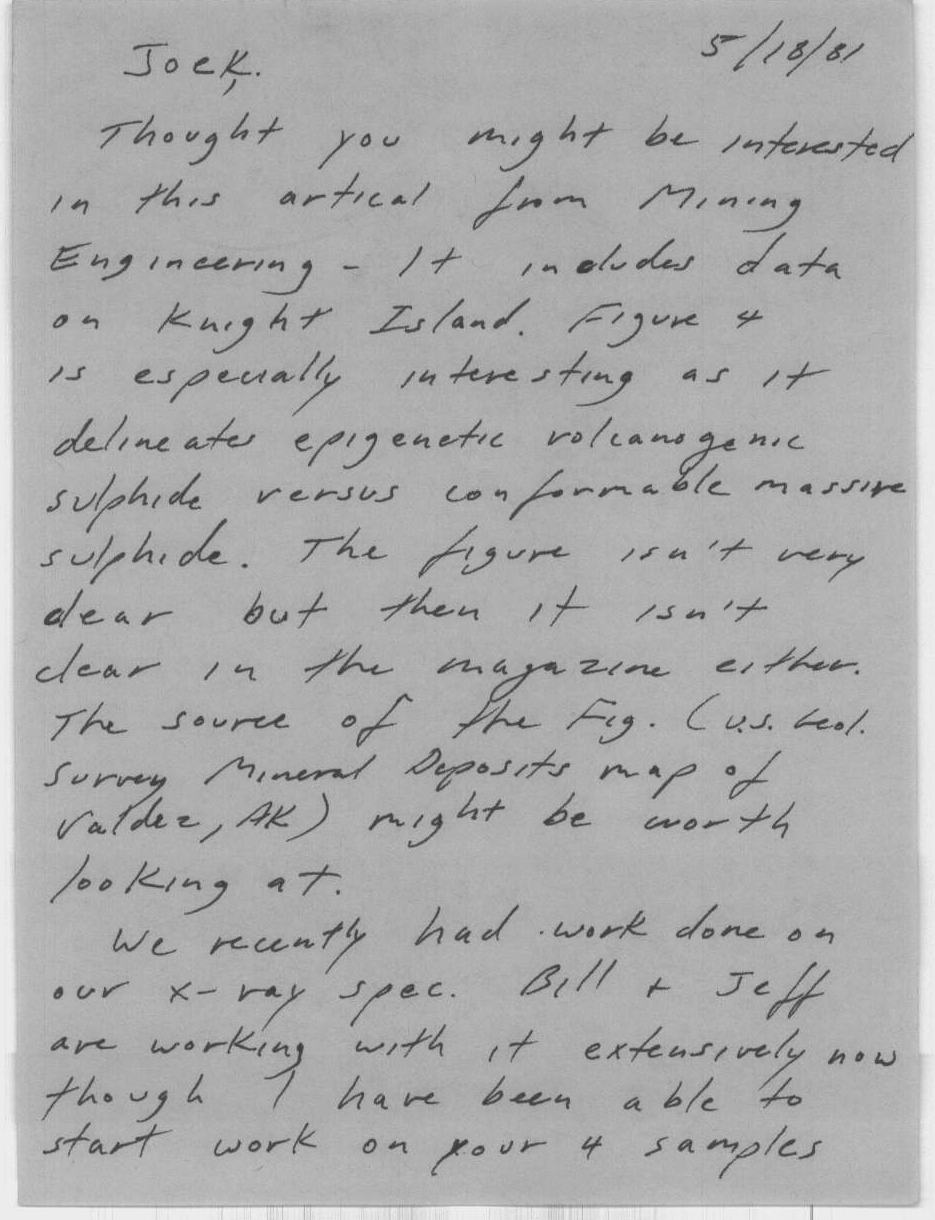 5/18/81
Joek,
Thought you might be interested
in this artical from Mining
Engineering - It includes data
on Knight Island. Figure 4
is especially interesting as it
delineates epigenetic volcanogenic
sulphide versus conformable massive
sulphide. The figure isn't very
clear but then it isn't
clear in the magazine either.
The source of the Fig. (U.S. Geol.
Survey Mineral Deposits map of
Valdez, AK) might be worth
looking at.
We recently had work done on
our x-ray spec. Bill + Jeff
are working with it extensively now
though I have been able to
start work on your 4 samples